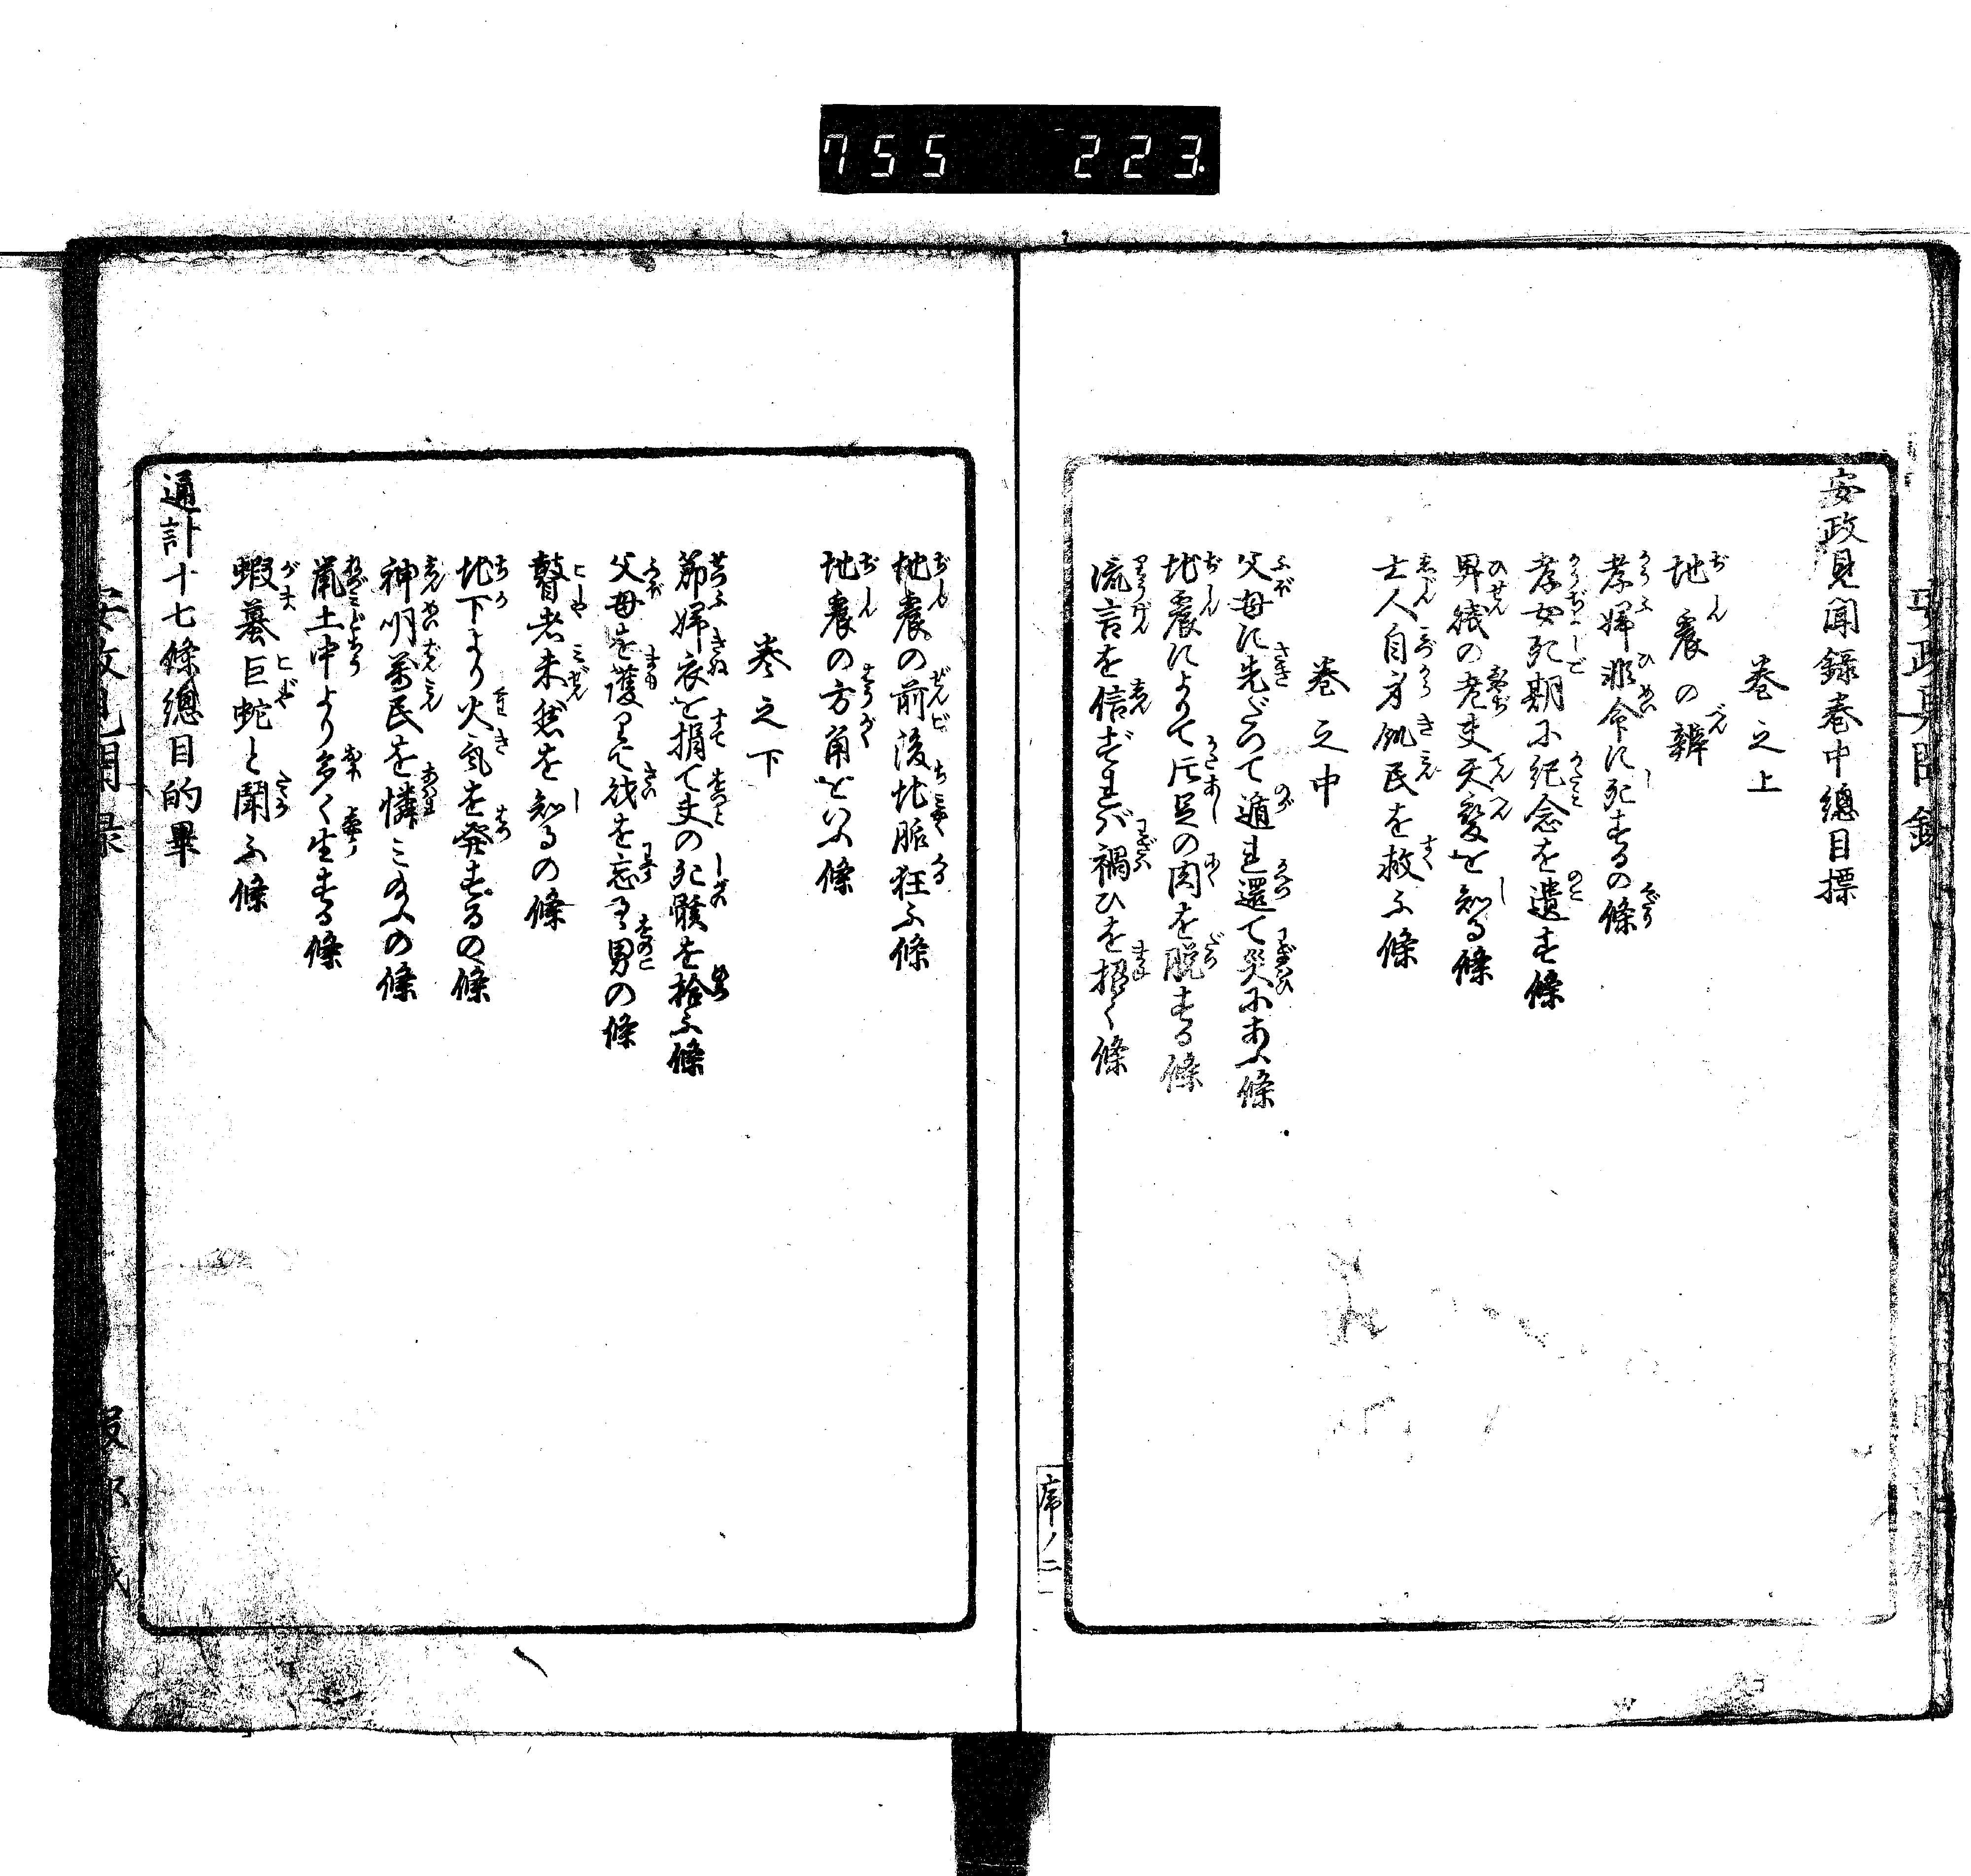 755 223
安政見聞録巻中總目標
巻之上
地震の辨
孝婦非命に死するの條
孝女死期に紀念を遺す條
卑賎の老吏天変を知る條
士人自ら飢民を救ふ條
巻之中
父母に先だつて遁れ還て災にあふ條
地震によりて片足の肉を脱する條
流言を信ずれば禍ひを招く條
序ノ二
地震の前後地脈狂ふ條
地震の方角をいふ條
巻之下
節婦衣を捐て夫の死骸を拾ふ條
父母を護りて後を忘るゝ男の條
瞽者未然を知るの條
地下より火氣を発するの條
神明萬民を憐ミ玉ふの條
鼠土中より多く生ずる條
蝦蟇巨蛇と闘ふ條
通計十七條總目的畢